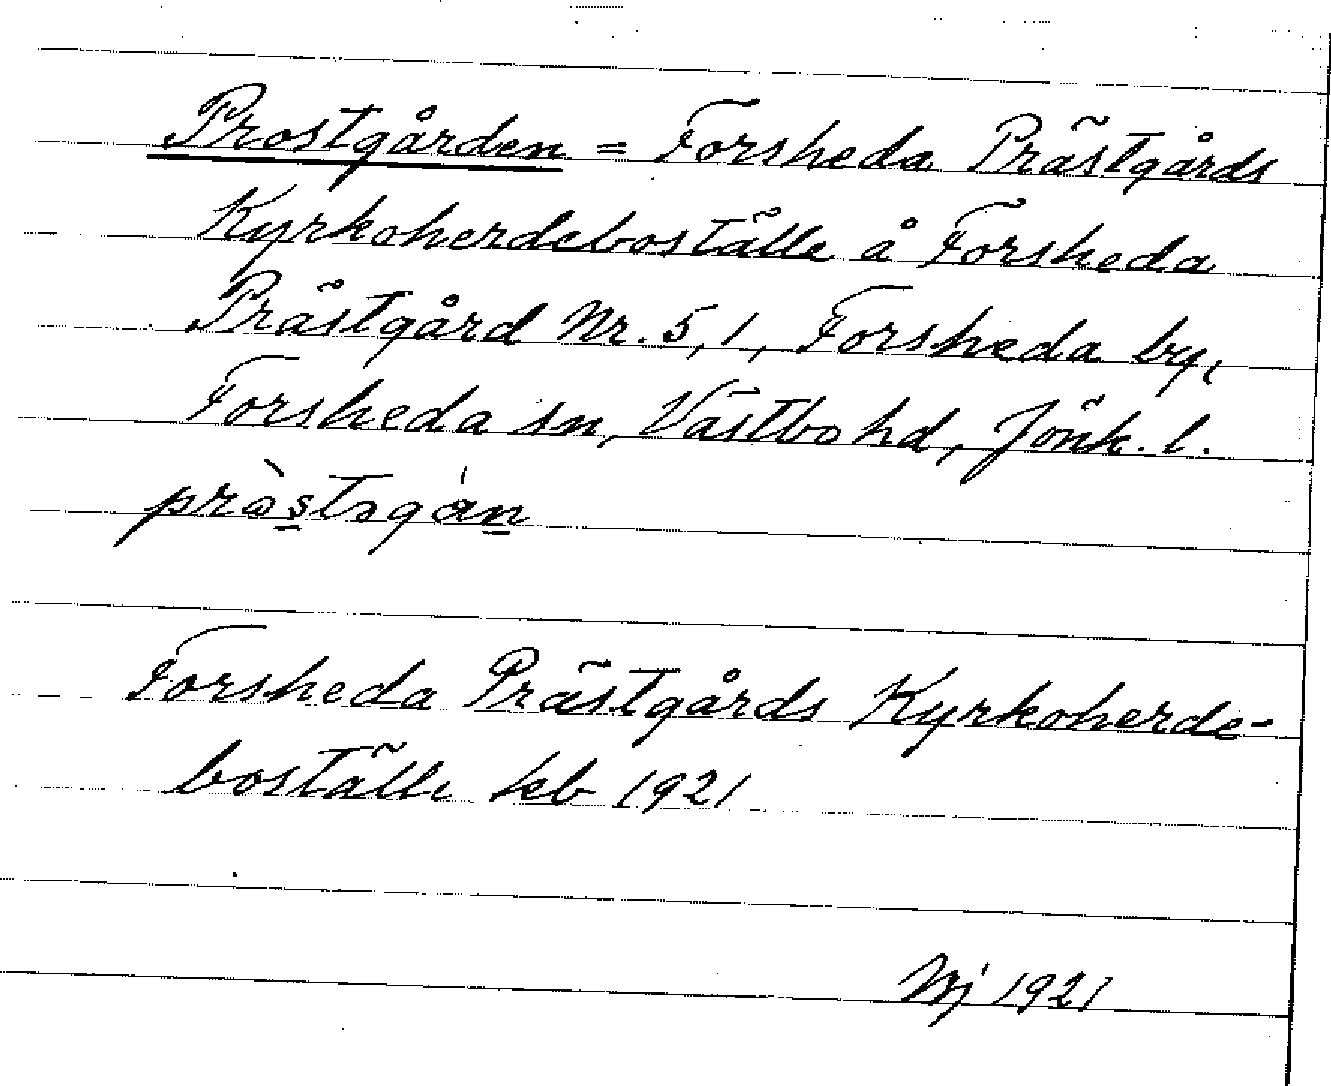 Prostgården = Forsheda Prästgårds
Kyrkoherdeboställe å Forsheda
Prästgård Nr. 5, 1, Forsheda by,
Forsheda sn, Västbo hd, Jönk. l.
Forsheda Prästgårds Kyrkoherde-
boställe kb 1921
1921